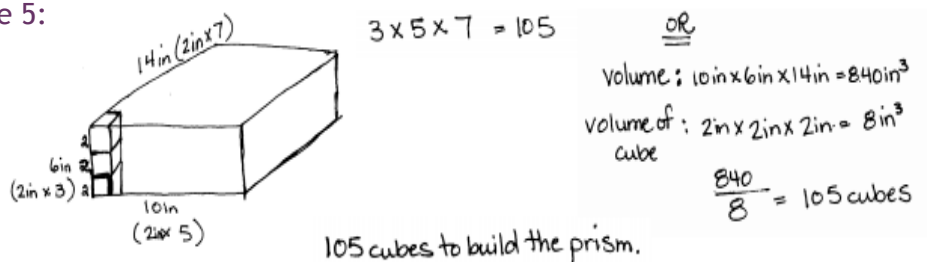 e 5:
14in (2in x 7)
2
6in 2
(2in x 3) 2
10in
(2in x 5)
3 x 5 x 7 = 105
OR
Volume: 10in x 6in x 14in = 840in³
Volume of: 2in x 2in x 2in. = 8in³
cube
840
8
= 105 cubes
105 cubes to build the prism.